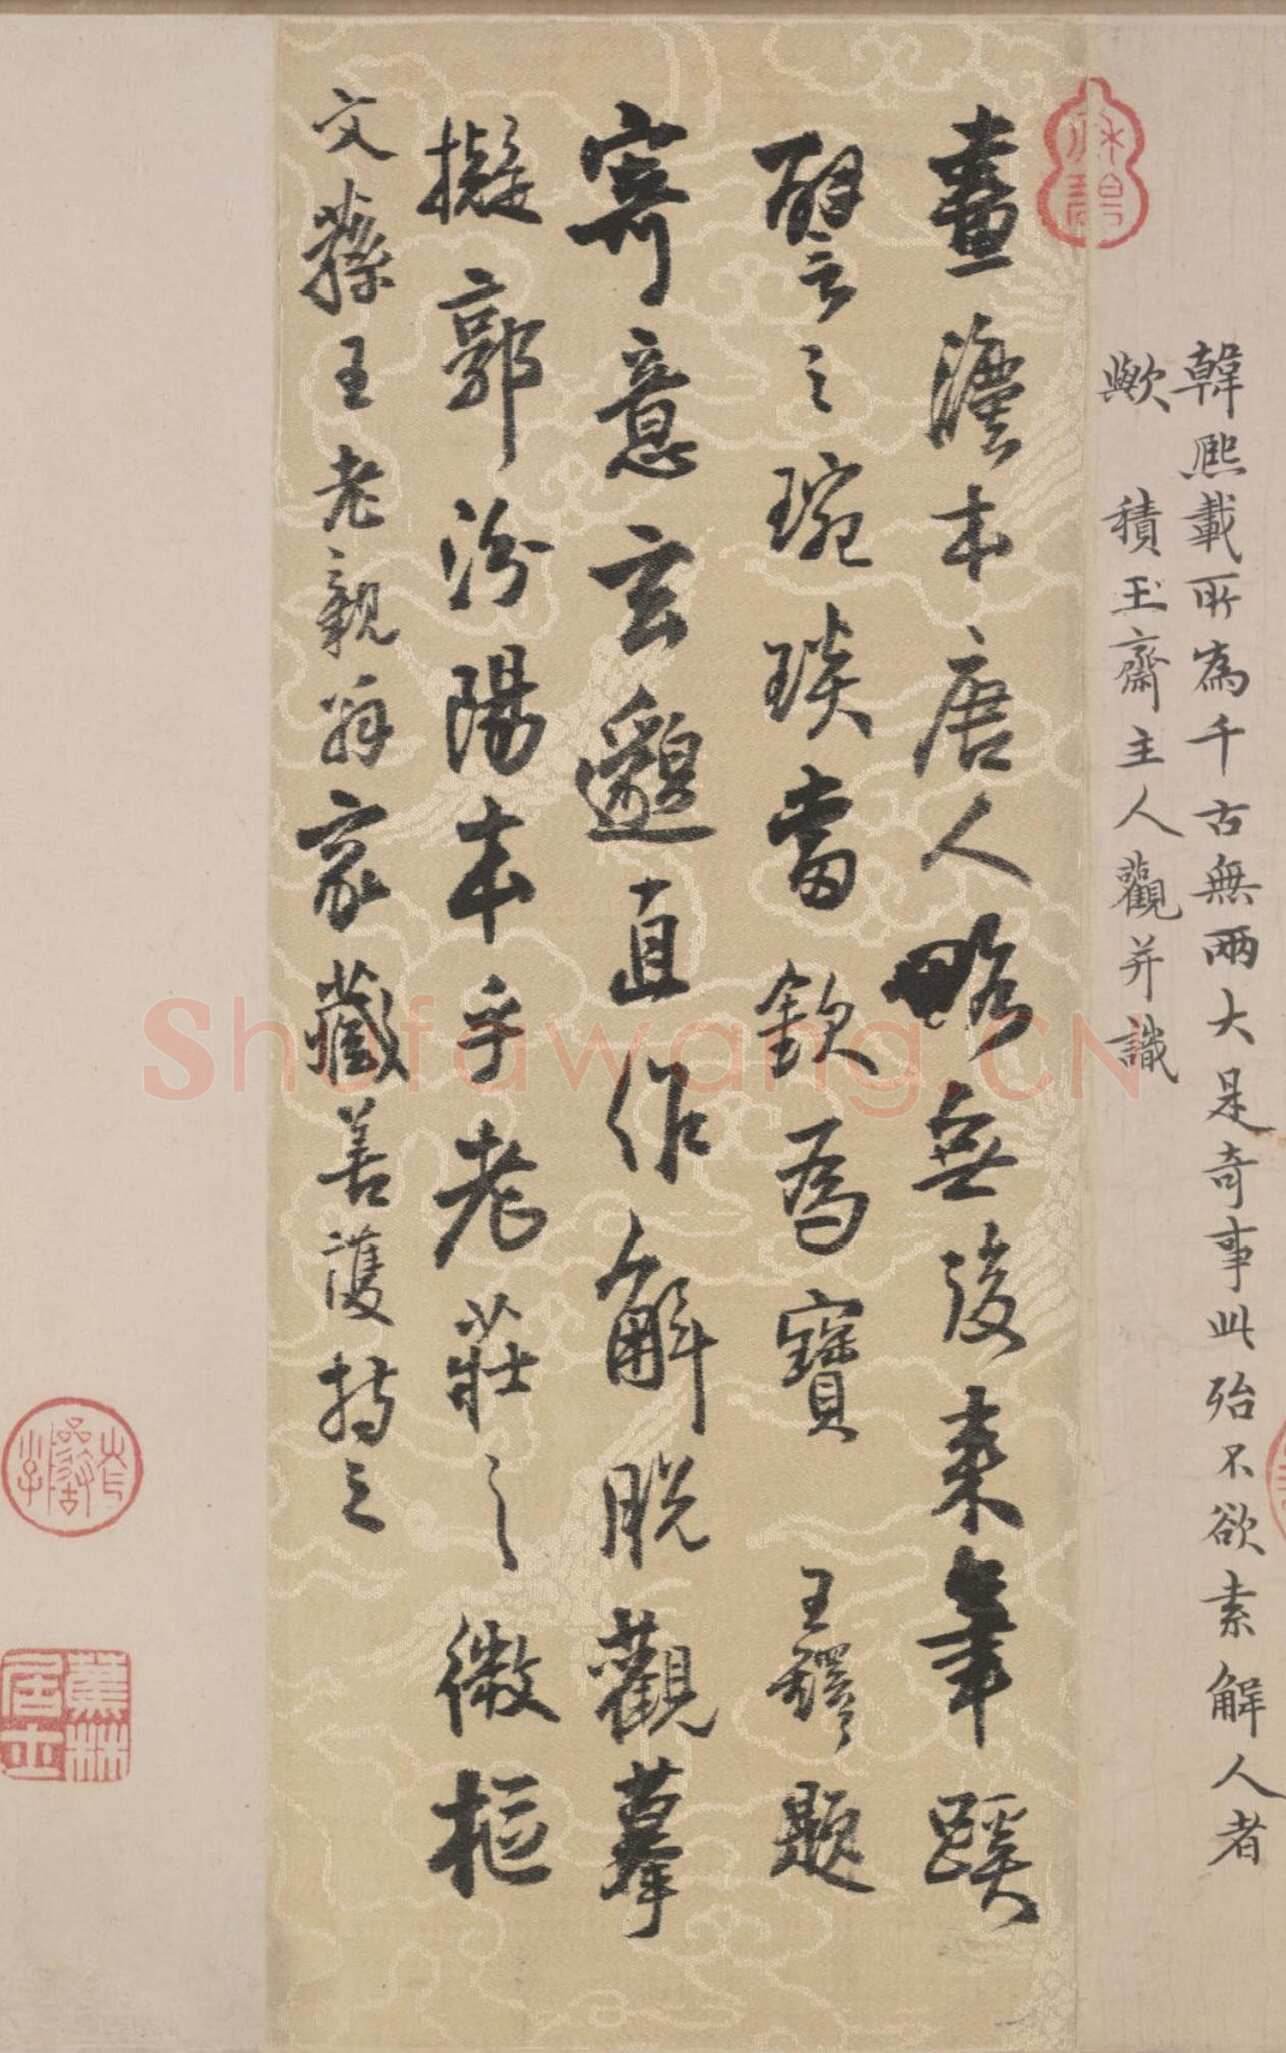 韓熙載所為千古無兩大是奇事此殆不欲索解人者
歟 積玉齋主人觀并識
畫灋本唐人略無後來筆蹊
譬之琬琰當欽為寶 王鐸題
寄意玄邈直作解脫觀摹
擬郭汾陽本乎老莊之微樞
文蓀王老親翁家藏善護持之
蕉林居士
Shufawang.CN